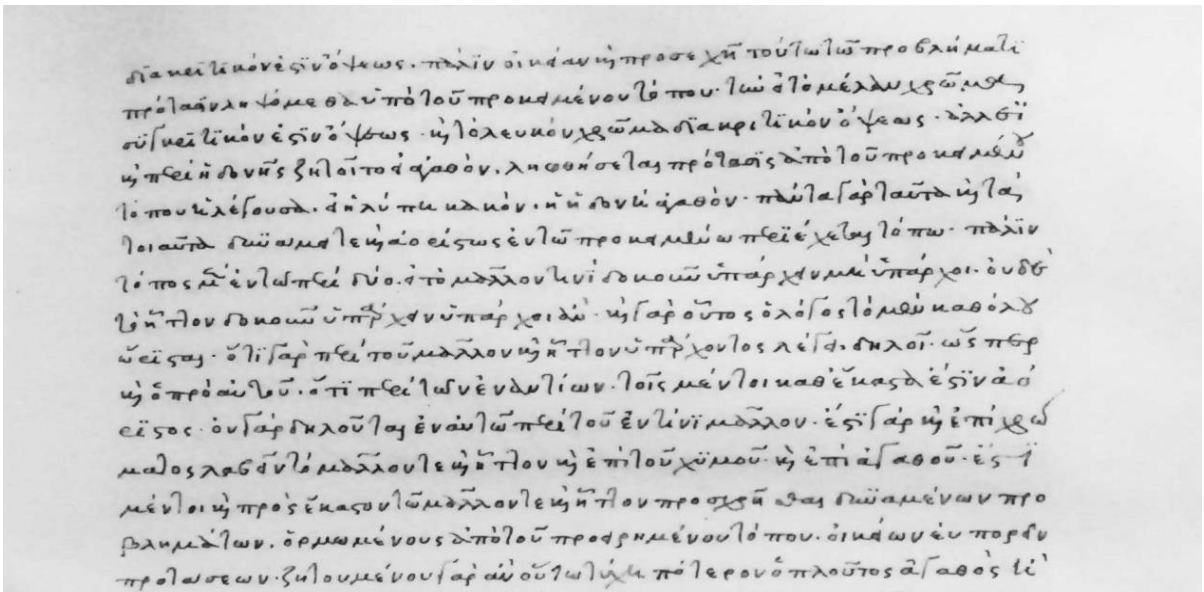 διακριτικόν ἐστιν ὄψεως. πάλιν οἰκείαν καὶ προσεχῆ τούτω τῶ προβλήματι
πρότασιν ληψόμεθα ὑπὸ τοῦ προκειμένου τόπου· τῶ εἰ τὸ μέλαν χρῶμα
συγκριτικόν ἐστιν ὄψεως· καὶ τὸ λευκὸν χρῶμα διακριτικὸν ὄψεως· ἀλλ' εἰ
καὶ περὶ ἡδονῆς ζητοῖτο εἰ ἀγαθόν, ληφθήσεται πρότασις ἀπὸ τοῦ προκειμένου
τόπου ἡ λέγουσα. εἰ ἡ λύπη κακόν, ἡ ἡδονὴ ἀγαθόν· πάντα γὰρ ταῦτα καὶ τὰ
τοιαῦτα δυνάμει τε καὶ ἀορίστως ἐν τῶ προκειμένω περιέχεται τόπω· πάλιν
τόπος μέν ἐν τῶ περὶ δύο. εἰ τὸ μᾶλλον τινὶ δοκοῦν ὑπάρχειν μὴ ὑπάρχοι. οὐδὲ
τὸ ἧττον δοκοῦν ὑπάρχειν ὑπάρχοι ἄν· καὶ γὰρ οὗτος ὁ λόγος τὸ μὲν καθόλου
ὥρισται· ὅτι γὰρ περὶ τοῦ μᾶλλον καὶ ἧττον ὑπάρχοντος λέγει, δηλοῖ. ὥσπερ
καὶ ὁ πρὸ αὐτοῦ. ὅτι περὶ τῶν ἐναντίων. τοῖς μέντοι καθ' ἕκαστά ἐστιν ἀό
ριστος· οὐ γὰρ δηλοῦται ἐν αὐτῶ περὶ τοῦ ἐν τίνι μᾶλλον. ἔστι γὰρ καὶ ἐπὶ χρώ
ματος λαβεῖν τὸ μᾶλλόν τε καὶ ἧττον καὶ ἐπὶ τοῦ χυμοῦ· καὶ ἐπὶ ἀγαθοῦ· ἔστι
μέντοι καὶ πρὸς ἕκαστον τῶν μᾶλλόν τε καὶ ἧττον προσχρῆσθαι δυναμένων προ
βλημάτων. ὁρμωμένους ἀπὸ τοῦ προειρημένου τόπου. οἰκείων εὐπορεῖν
προτάσεων· ζητουμένου γὰρ ἂν οὕτω τύχη πότερον ὁ πλοῦτος ἀγαθός